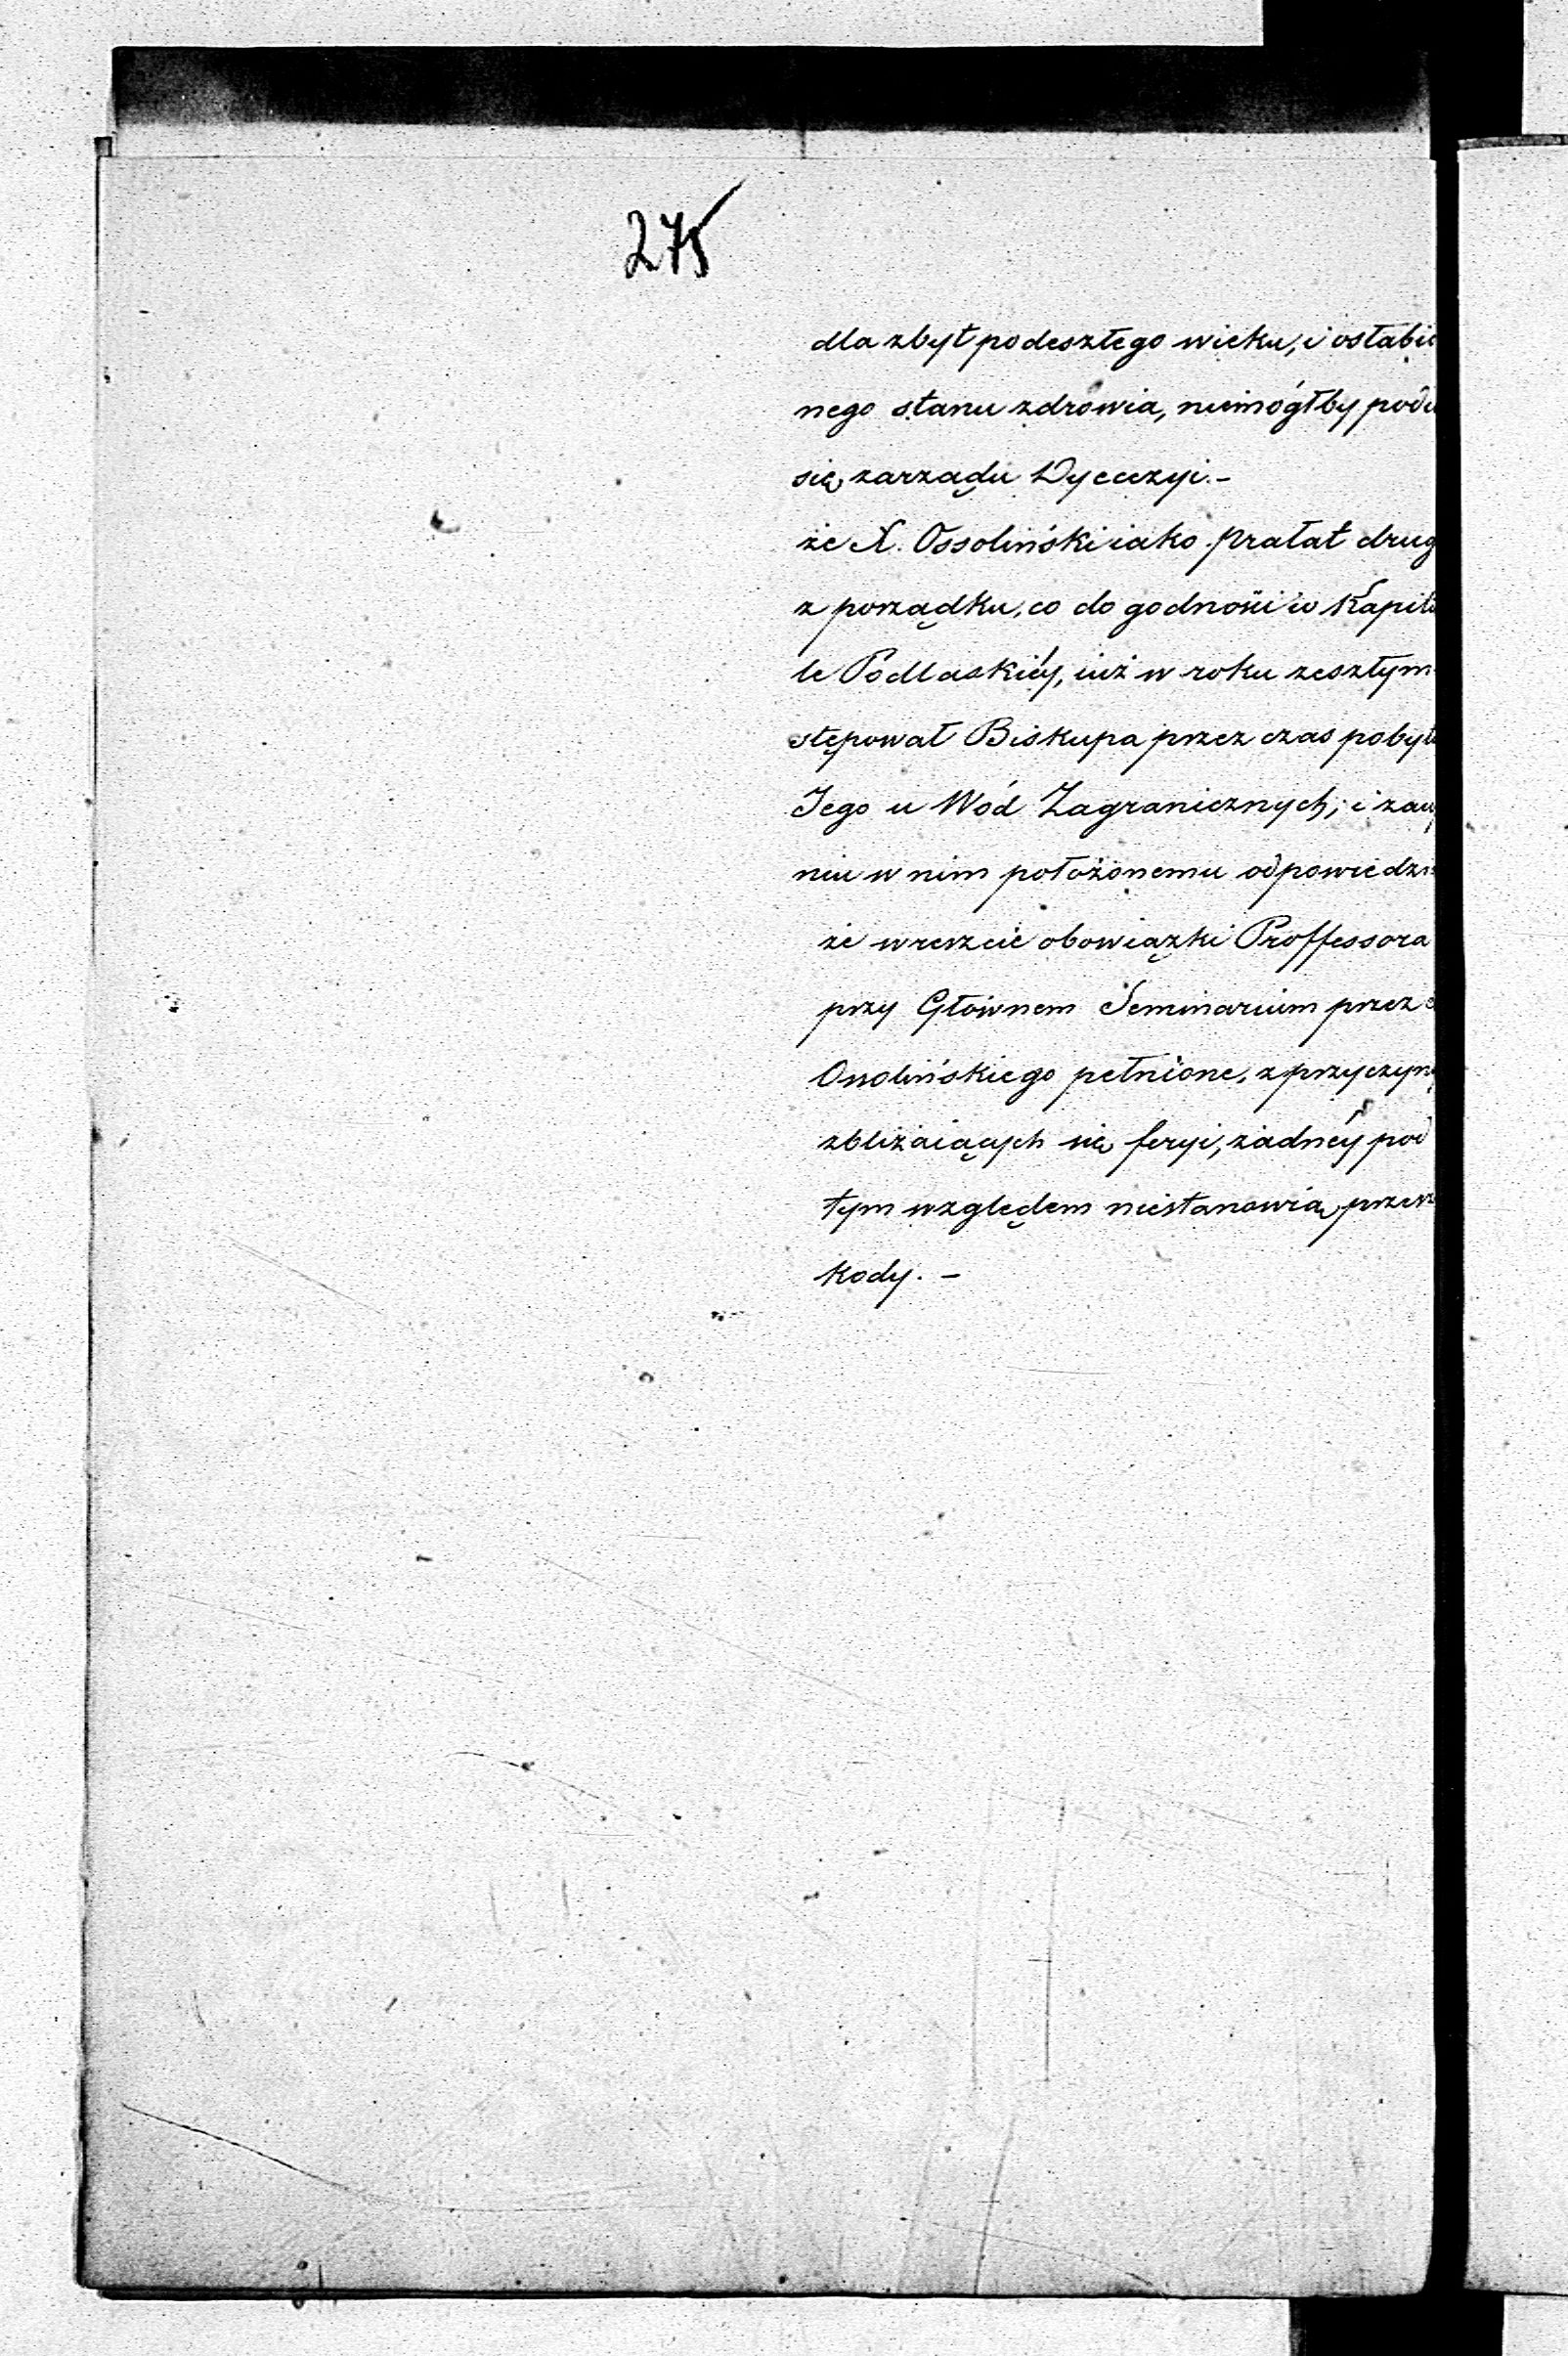 275
dla zbyt podeszłego wieku, i osłabie
nego stanu zdrowia, niemógłby
się zarządu Dyecezyi.-
że X. Ossoliński iako Prałat drug
z porządku, co do godności w Kapitu
le Podlaskiéy, iuż w roku zeszłym
stępował Biskupa przez czas pobytu
Jego u Wód Zagranicznych; i
niu w nim położonemu odpowiedzi
że wreszcie obowiązki Proffessora
przy Głównem Seminarium przez
Ossolińskiego pełnione, z przyczyny
zbliżaiących się feryi, żadnéy pod
tym względem niestanowią przesz
kody. -